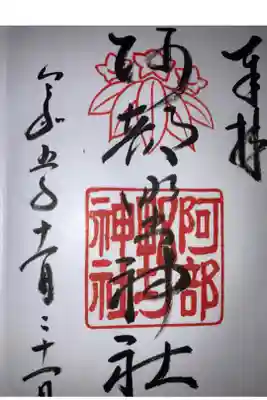 奉拝
阿部野神社
令和五年十一月二十一日
阿部
野
神社